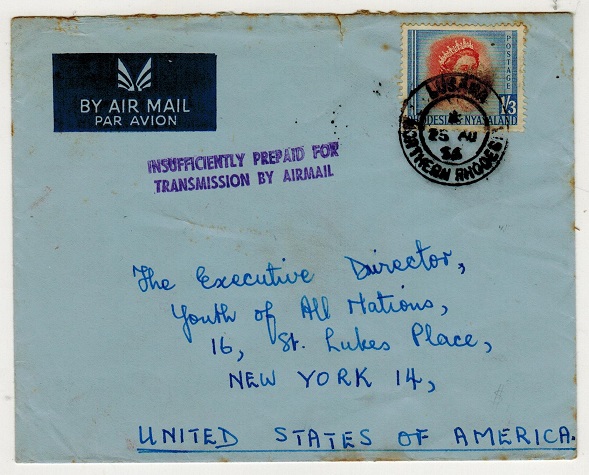 BY AIR MAIL
PAR AVION
POSTAGE
1/3
RHODESIA & NYASALAND
LUSAKA
25 AU
56
NORTHERN RHODESIA
INSUFFICIENTLY PREPAID FOR
TRANSMISSION BY AIRMAIL
The Executive Director,
Youth of All Nations,
16, St. Lukes Place,
NEW YORK 14,
UNITED STATES OF AMERICA.